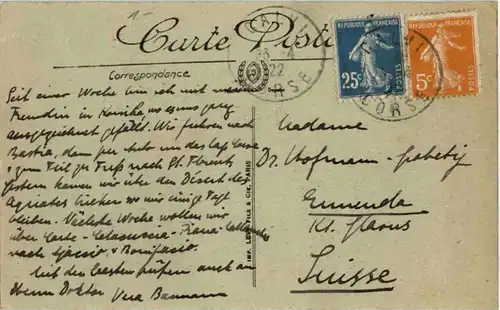 1-
Carte Postale
Correspondance
Seit einer Woche bin ich mit meiner
Freundin in Korsika wo es uns ganz
ausgezeichnet gefällt. Wir fuhren nach
Bastia, dann per Auto um das Cap Corse
+ zum Teil zu Fuss nach St. Florent
Gestern kamen wir über den Désert des
Agriates hieher wo wir einige Tage
bleiben. Nächste Woche wollen wir
über Calvi - Calacuccia - Piana - 
nach Ajaccio, + Bonifacio.
Mit den besten Grüssen auch an
Herrn Doktor Vera Baumann
IMP. LEVY FILS & CIE, PARIS
22
CORSE
REPUBLIQUE FRANÇAISE
25c
POSTES
REPUBLIQUE FRANÇAISE
5c
POSTES
CORSE
Madame
Dr. Hofmann-
Ennenda
Kt. Glarus
Suisse